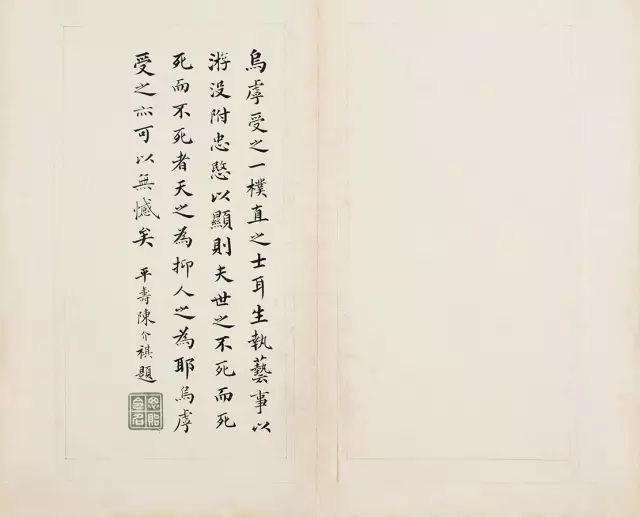 烏虖受之一樸直之士耳生執藝事以
游没附忠愍以顯則夫世之不死而死
死而不死者天之為抑人之為耶烏虖
受之亦可以無憾矣 平壽陳介祺題
思貽令名